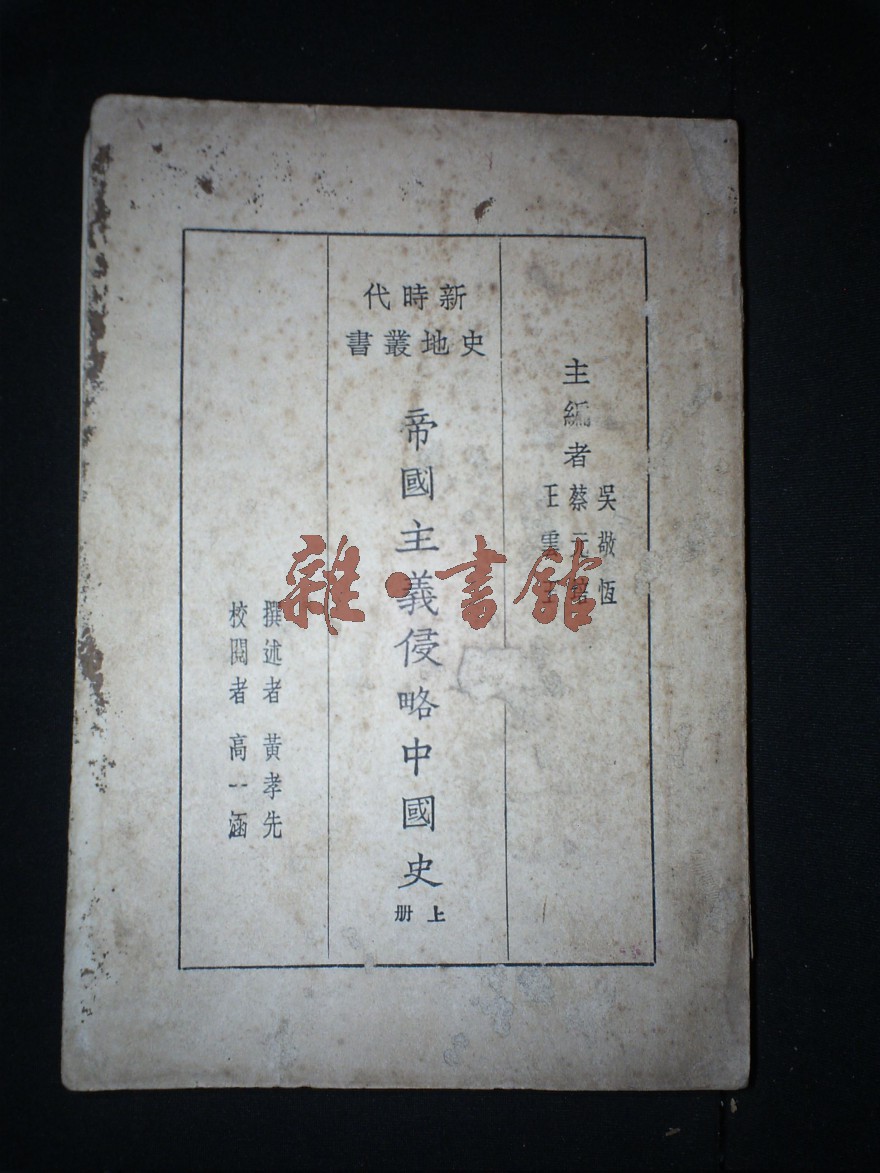 主編者
吳敬恆
蔡元培
王雲五
新時代
史地叢書
帝國主義侵略中國史
上册
撰述者 黃孝先
校閱者 高一涵
雜·書館